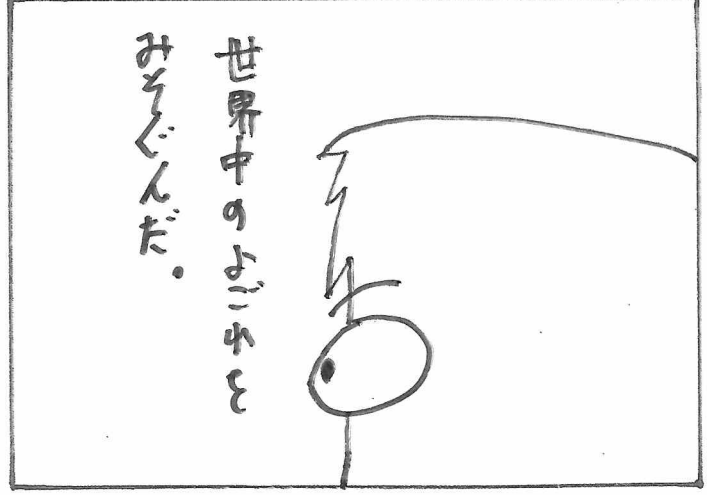 世界中のよごれを
みそぐんだ。